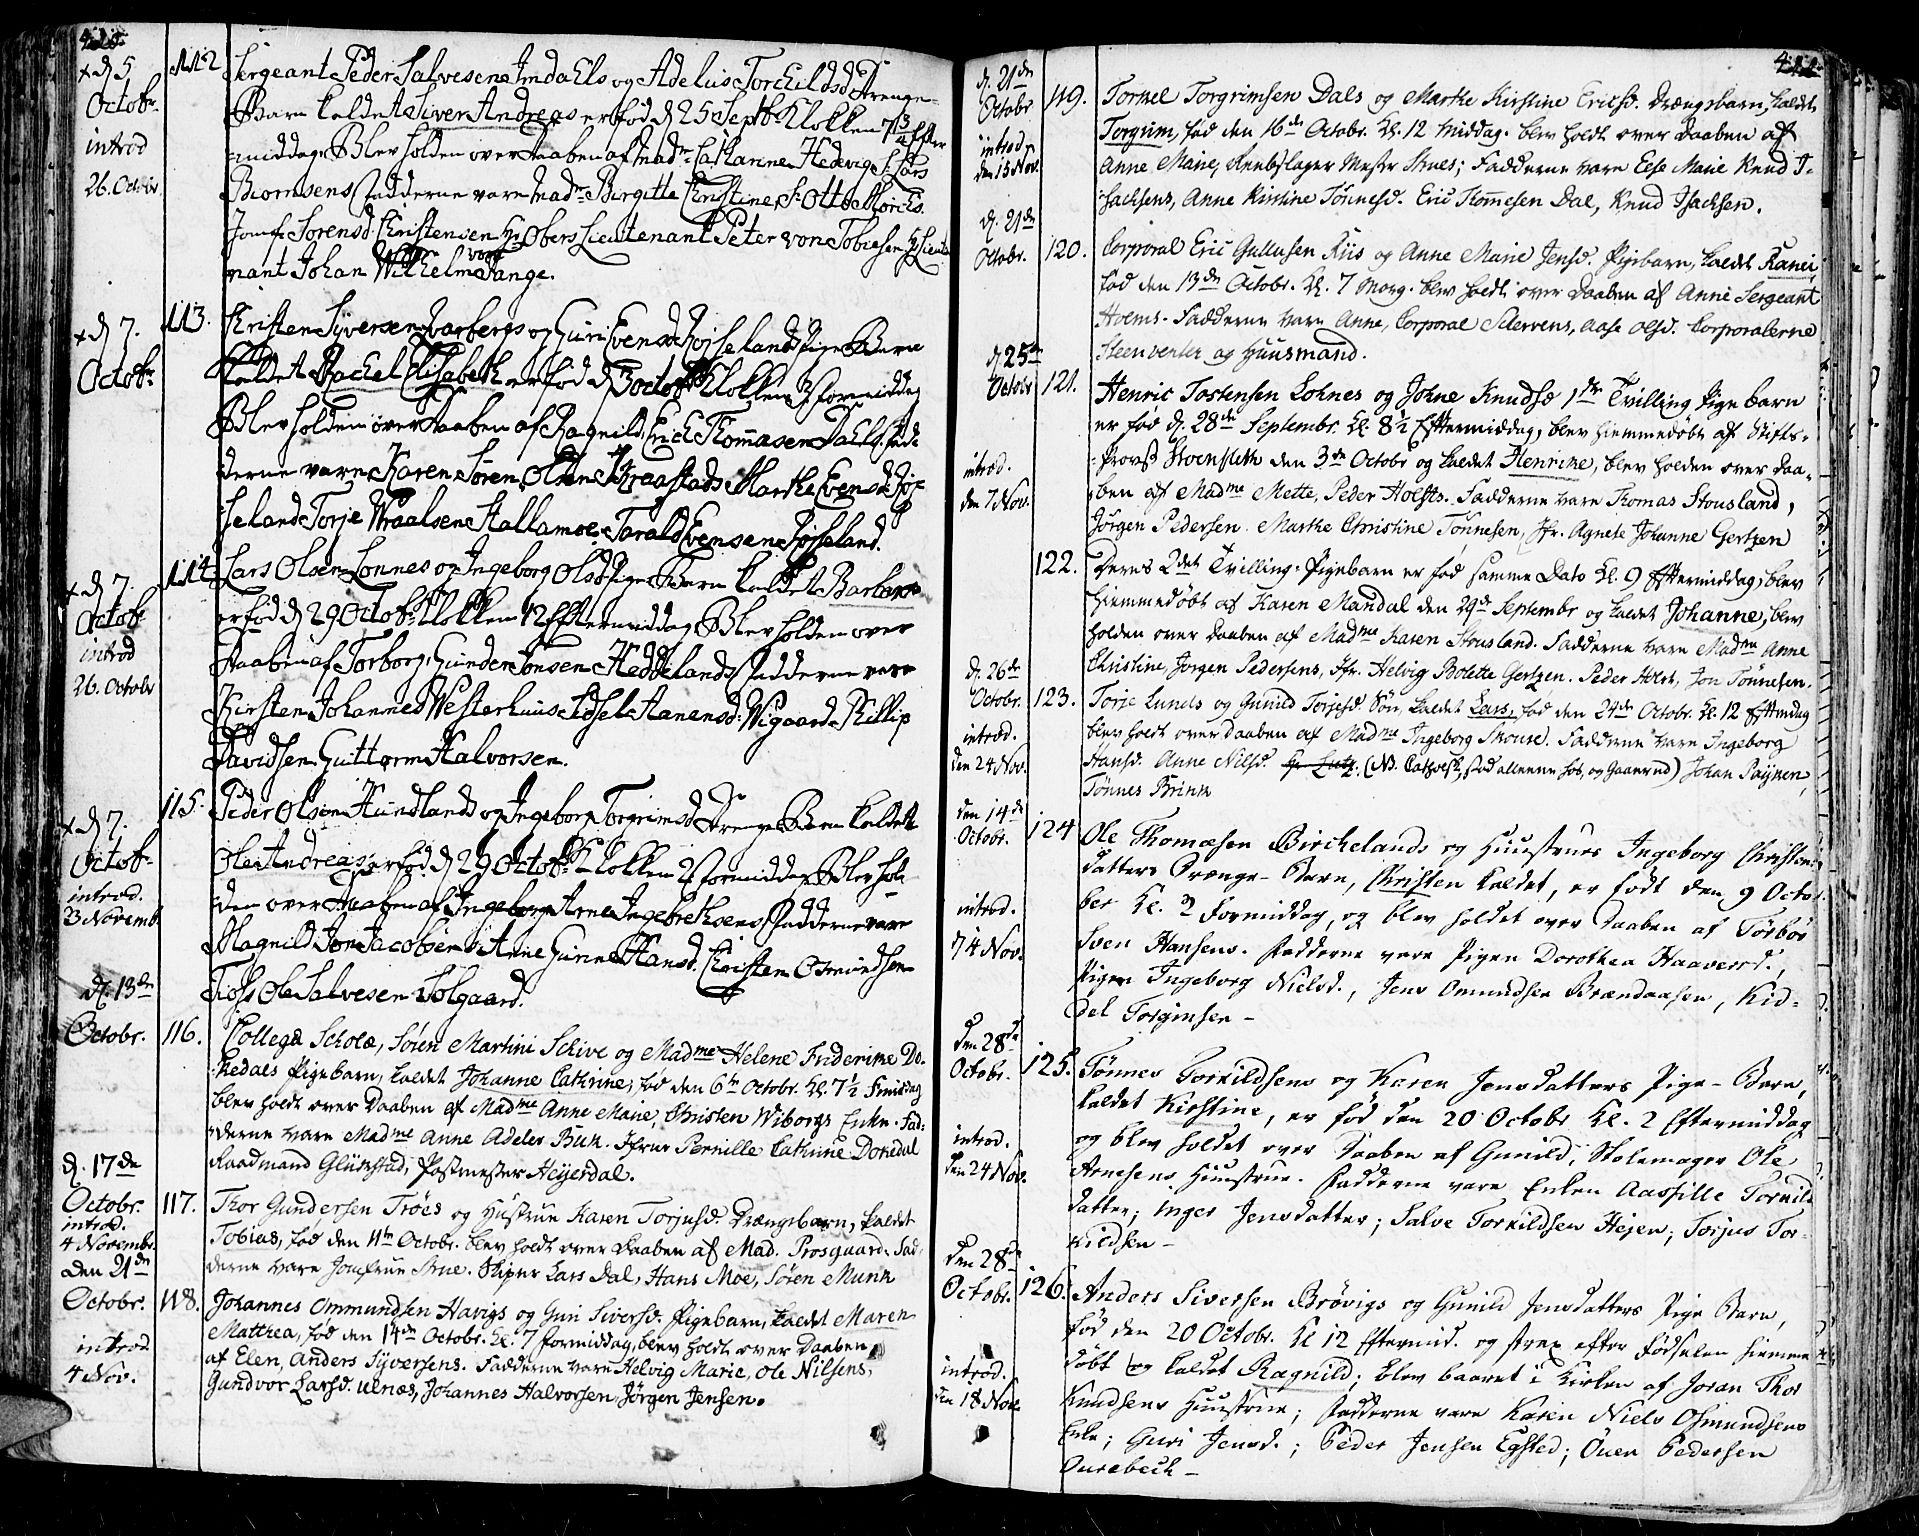 d 5
Octobr
introd
26. Octobr
112
Sergeant Peder Salvesen Amdahls og Adelus Torkildsd Drenge-
Barn kaldet Siver Andreas er fød d 25 Septbr Klokken 7 3/4 Efter
middag Blev holden over Daaben af Madme Catharine Hedvig Sr Lars
Biørnsens Fadderne vare Madme Birgitte Christine Sr Otto Mørchs
Jomfr Sørensd Christensen Hr Obers Lieutenant Peter von Tobiesen Hr Lieute
nant Johan Wilhelm von Tange.
d 7.
Octobr
113.
Christen Syversen Qvarbergs og Guri Evensd Røsselands Pige Barn
kaldet Rachel Elisabeth er fød d 3 octobr Klokken 3 formiddag
Blev holden over Daaben af Ragnild Erich Thommasen Dahls Fad-
derne vare Karen Søren Olsen Kraastads Marthe Evensd Røs-
seland Torje Wraalsen Hallamoe Tarald Evensen Røsseland.
d 7.
Octobr
introd
26. Octobr
114
Lars Olsen Lonnes og Ingeborg Olsd Pige Barn kaldet Barbara
er fød d 29 Octobr Klokken 12 Eftermiddag Blev holden over
Daaben af Torborg Gunder Jonsen Heddelands Fadderne vare
Kirsten Johannes Westerhuus Sidsel Aanensd: Wigaard Phillip
Davidsen Guttorm Halvorsen.
d 7.
Octobr
introd.
23 Novemb.
115.
Peder Olsen Hundlands og Ingeborg Torgrimsd Drenge Barn kaldet
Ole Andreas er fød d 29 Octobr Klokken 2 formiddag Blev hol-
den over Daaben af Ingeborg Arne Ingebrethsens Fadderne vare
Magnild Jon Jacobsens Anne Gurine Hansd. Christen Osmundsen
Fioss Ole Salvesen Solgaard.
d. 13de
Octobr.
116.
Collega Scholæ, Søren Martini Schive og Madme Helene Friderike Do-
kedals Pigebarn, kaldet Johanne Cathrine; fød den 6te Octobr. Kl. 7½ Fmiddag
blev holdt over Daaben af Madme Anne Marie, Christen Wiborgs Enke. Fad-
derne vare Madme Anne Adeler Buch. Jfrue Pernille Cathrine Dokedal
Raadmand Glükstad, Postmester Heyerdal.
d. 17de
Octobr.
introd.
4 Novembr.
117.
Thor Gundersen Trøes og Hustrue Karen Torjusd. Drængebarn, kaldet
Tobias, fød den 11te Octobr. blev holdt over Daaben af Mad. Prosgaard. Fad-
derne vare Jomfrue Arue. Skiper Lars Dal, Hans Moe, Søren Munk
den 21de
Octobr.
introd
4 Nov.
118.
Johannes Ommundsen Havigs og Guri Siversd. Pigebarn, kaldet Maren
Matthea, fød den 14de Octobr. Kl. 7 formiddag, blev holdt over Daaben
af Elen, Anders Syversens. Fadderne vare Helvig Marie, Ole Nilsens,
Gundvor Larsd. ulnæs, Johannes Halvorsen, Jørgen Jensen.
d. 21de
Octobr
introd
den 15 Nov.
119.
Torkel Torgrimsen Dals og Marthe Kirstine Ericsd. Drængebarn, kaldet
Torgrim, fød den 16de Octobr. Kl. 12 Middag. blev holdt over Daaben af
Anne Marie, Reebslager Mester Skues; Fadderne vare Else Marie Knud I-
sachsens, Anne Kirstine Tønnesd. Eric Thommesen Dal, Knud Isachsen.
d. 21de
Octobr.
120.
Corporal Eric Gullusen Riis og Anne Marie Jensd. Pigebarn, kaldet Ranei,
fød den 13de Octobr. Kl. 7 Morg. blev holdt over Daaben af Anne Sergeant
Holms. Fadderne vare Anne, Corporal Siervens, Aase Olsd. Corporalerne
Steenverter og Huusmand.
d 25de
Octobr
introd.
den 7 Nov.
121.
Henric Tostensen Lohnes og Johne Knudsd 1ste Tvilling Pige barn
er fød d. 28de Septembr. Kl. 8½ Eftermiddag, blev hiemmedøbt af Stifts-
Provst Stoenfleth den 3de Octobr og kaldet Henrike, blev holden over Daa-
ben af Madme Mette, Peder Holfts. Fadderne vare Thomas Stousland,
Jørgen Pedersen. Marthe Christine Tønnesen, Jfr. Agnete Johanne Gertzen
122.
Deres 2det Tvilling-Pigebarn er fød samme Dato Kl. 9 Eftermiddag, blev
hiemmedøbt af Karen Mandal den 29de Septembr og kaldet Johanne, blev
holden over Daaben af Madme Karen Stousland. Fadderne vare Madme Anne
Christine, Jørgen Pedersens, Jfr. Helvig Bolette Gertzen. Peder Holst, Jon Tønnesen.
d. 26de
Octobr.
introd.
den 24 Nov.
123.
Torje Lunds og Gunild Torjesd. Søn, kaldet Lars, fød den 24de Octobr. Kl. 12 Eftmdag
blev holdt over Daaben af Madme Ingeborg Skouse. Fadderne vare Ingeborg
Hansd. Anne Nilsd. (NB. Catholsk, stod alleene hos, og Gaaer ud) Johan Paynen,
Tønnes Brink
den 14de
Octobr.
introd.
d 4 Nov.
124
Ole Thomæsen Birchelands og Huustrues Ingeborg Christens-
datters Drænge-Barn, Christen kaldet, er født den 9 Octo-
ber Kl. 2 Formiddag, og blev holdet over Daaben af Torbor
Sven Hansens. Fadderne vare Pigen Dorothea Haaversd.,
Pigen Ingeborg Nielsd., Jens Omundsen Brændaasen, Kid-
del Torgimsen —
den 28de
Octobr.
introd.
den 24 Nov.
125.
Tønnes Torkildsens og Karen Jensdatters Pige-Barn,
kaldet Kirstine, er fød den 20 Octobr Kl. 2 Eftermiddag
og blev holdet over Daaben af Gunild, Stolemager Ole
Arnesens Huustrue. Fadderne vare Enken Aassille Torkild
datter; Inger Jensdatter; Salve Torkildsen Heyen; Torjus Tor-
kildsen —
den 28de
Octobr.
introd.
den 18 Nov.
126.
Anders Siversen Brøvigs og Gunild Jensdatters Pige Barn,
fød den 20 Octobr. Kl 12 Eftermid. og strax efter Fødselen hiemme
døbt og kaldet Ragnild; blev baaret i Kirken af Joran Thor
Knudsens Huustrue; Fadderne vare Karen Niels Osmundsens
Enke; Guri Jensd.; Peder Jensen Egsted; Ouen Pedersen
Ourebech —